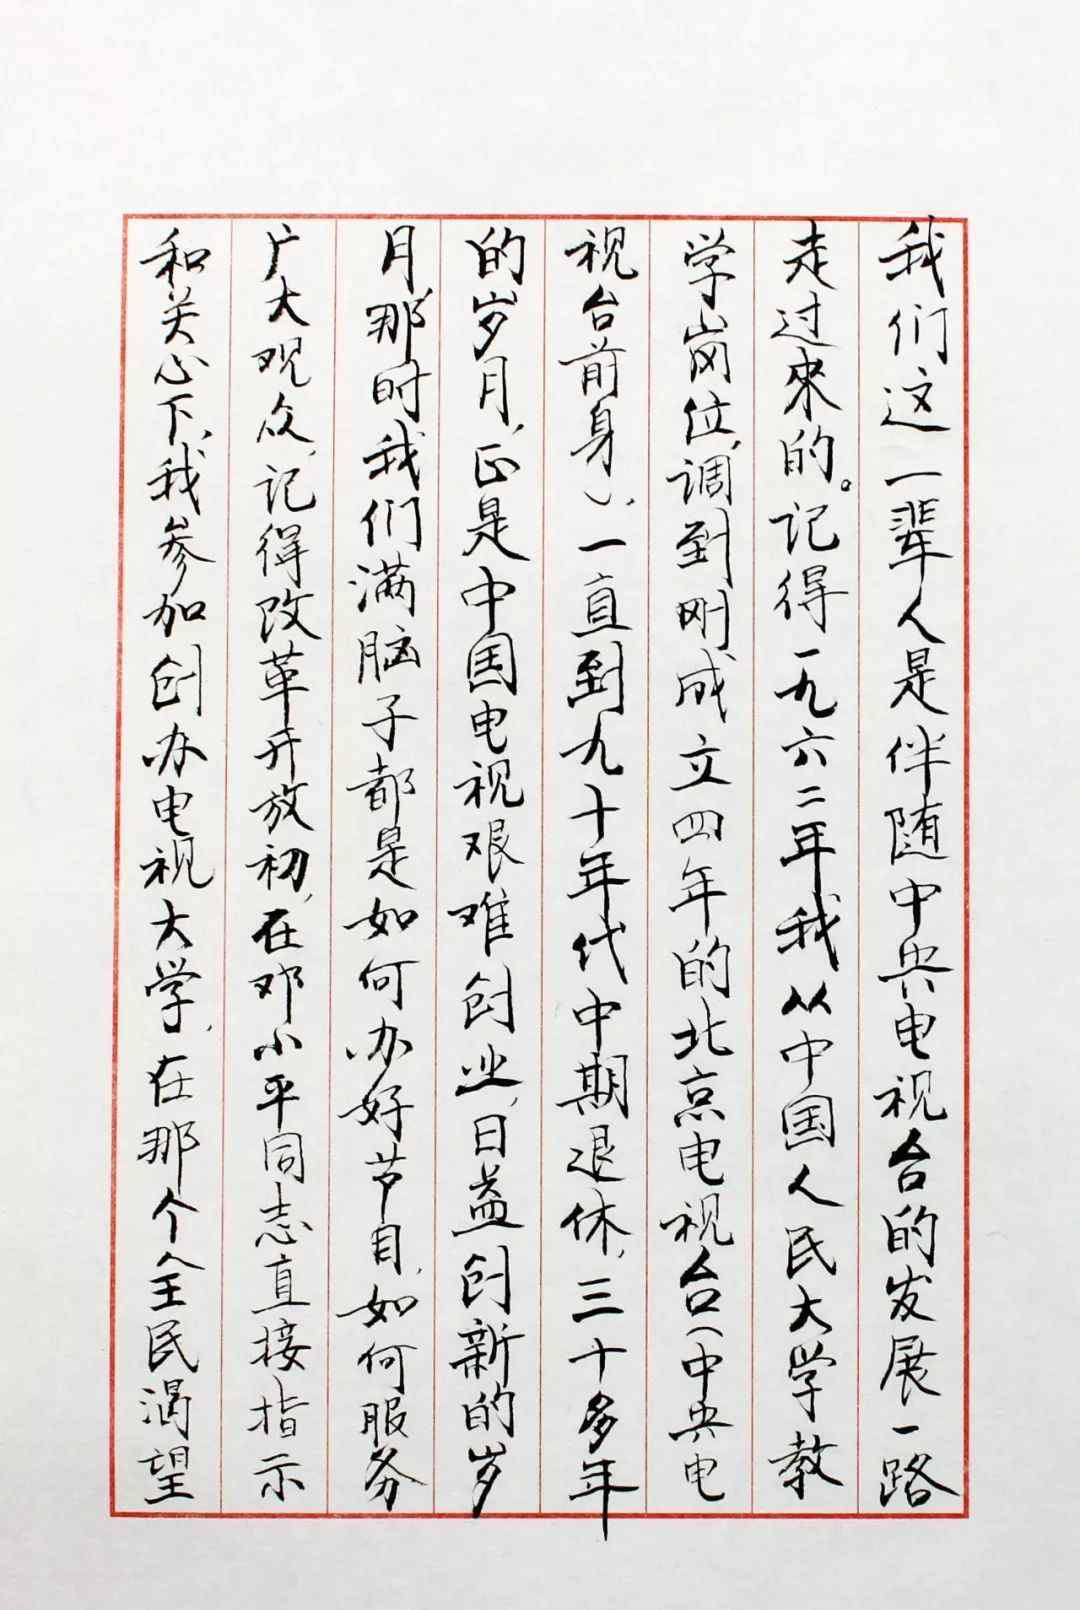 我们这一辈人是伴随中央电视台的发展一路
走过來的。记得一九六二年我从中国人民大学教
学岗位,调到刚成立四年的北京电视台(中央电
视台前身),一直到九十年代中期退休,三十多年
的岁月,正是中国电视艰难创业,日益创新的岁
月,那时我们满脑子都是如何办好节目,如何服务
广大观众,记得改革开放初,在邓小平同志直接指示
和关心下,我参加创办电视大学,在那个全民渴望